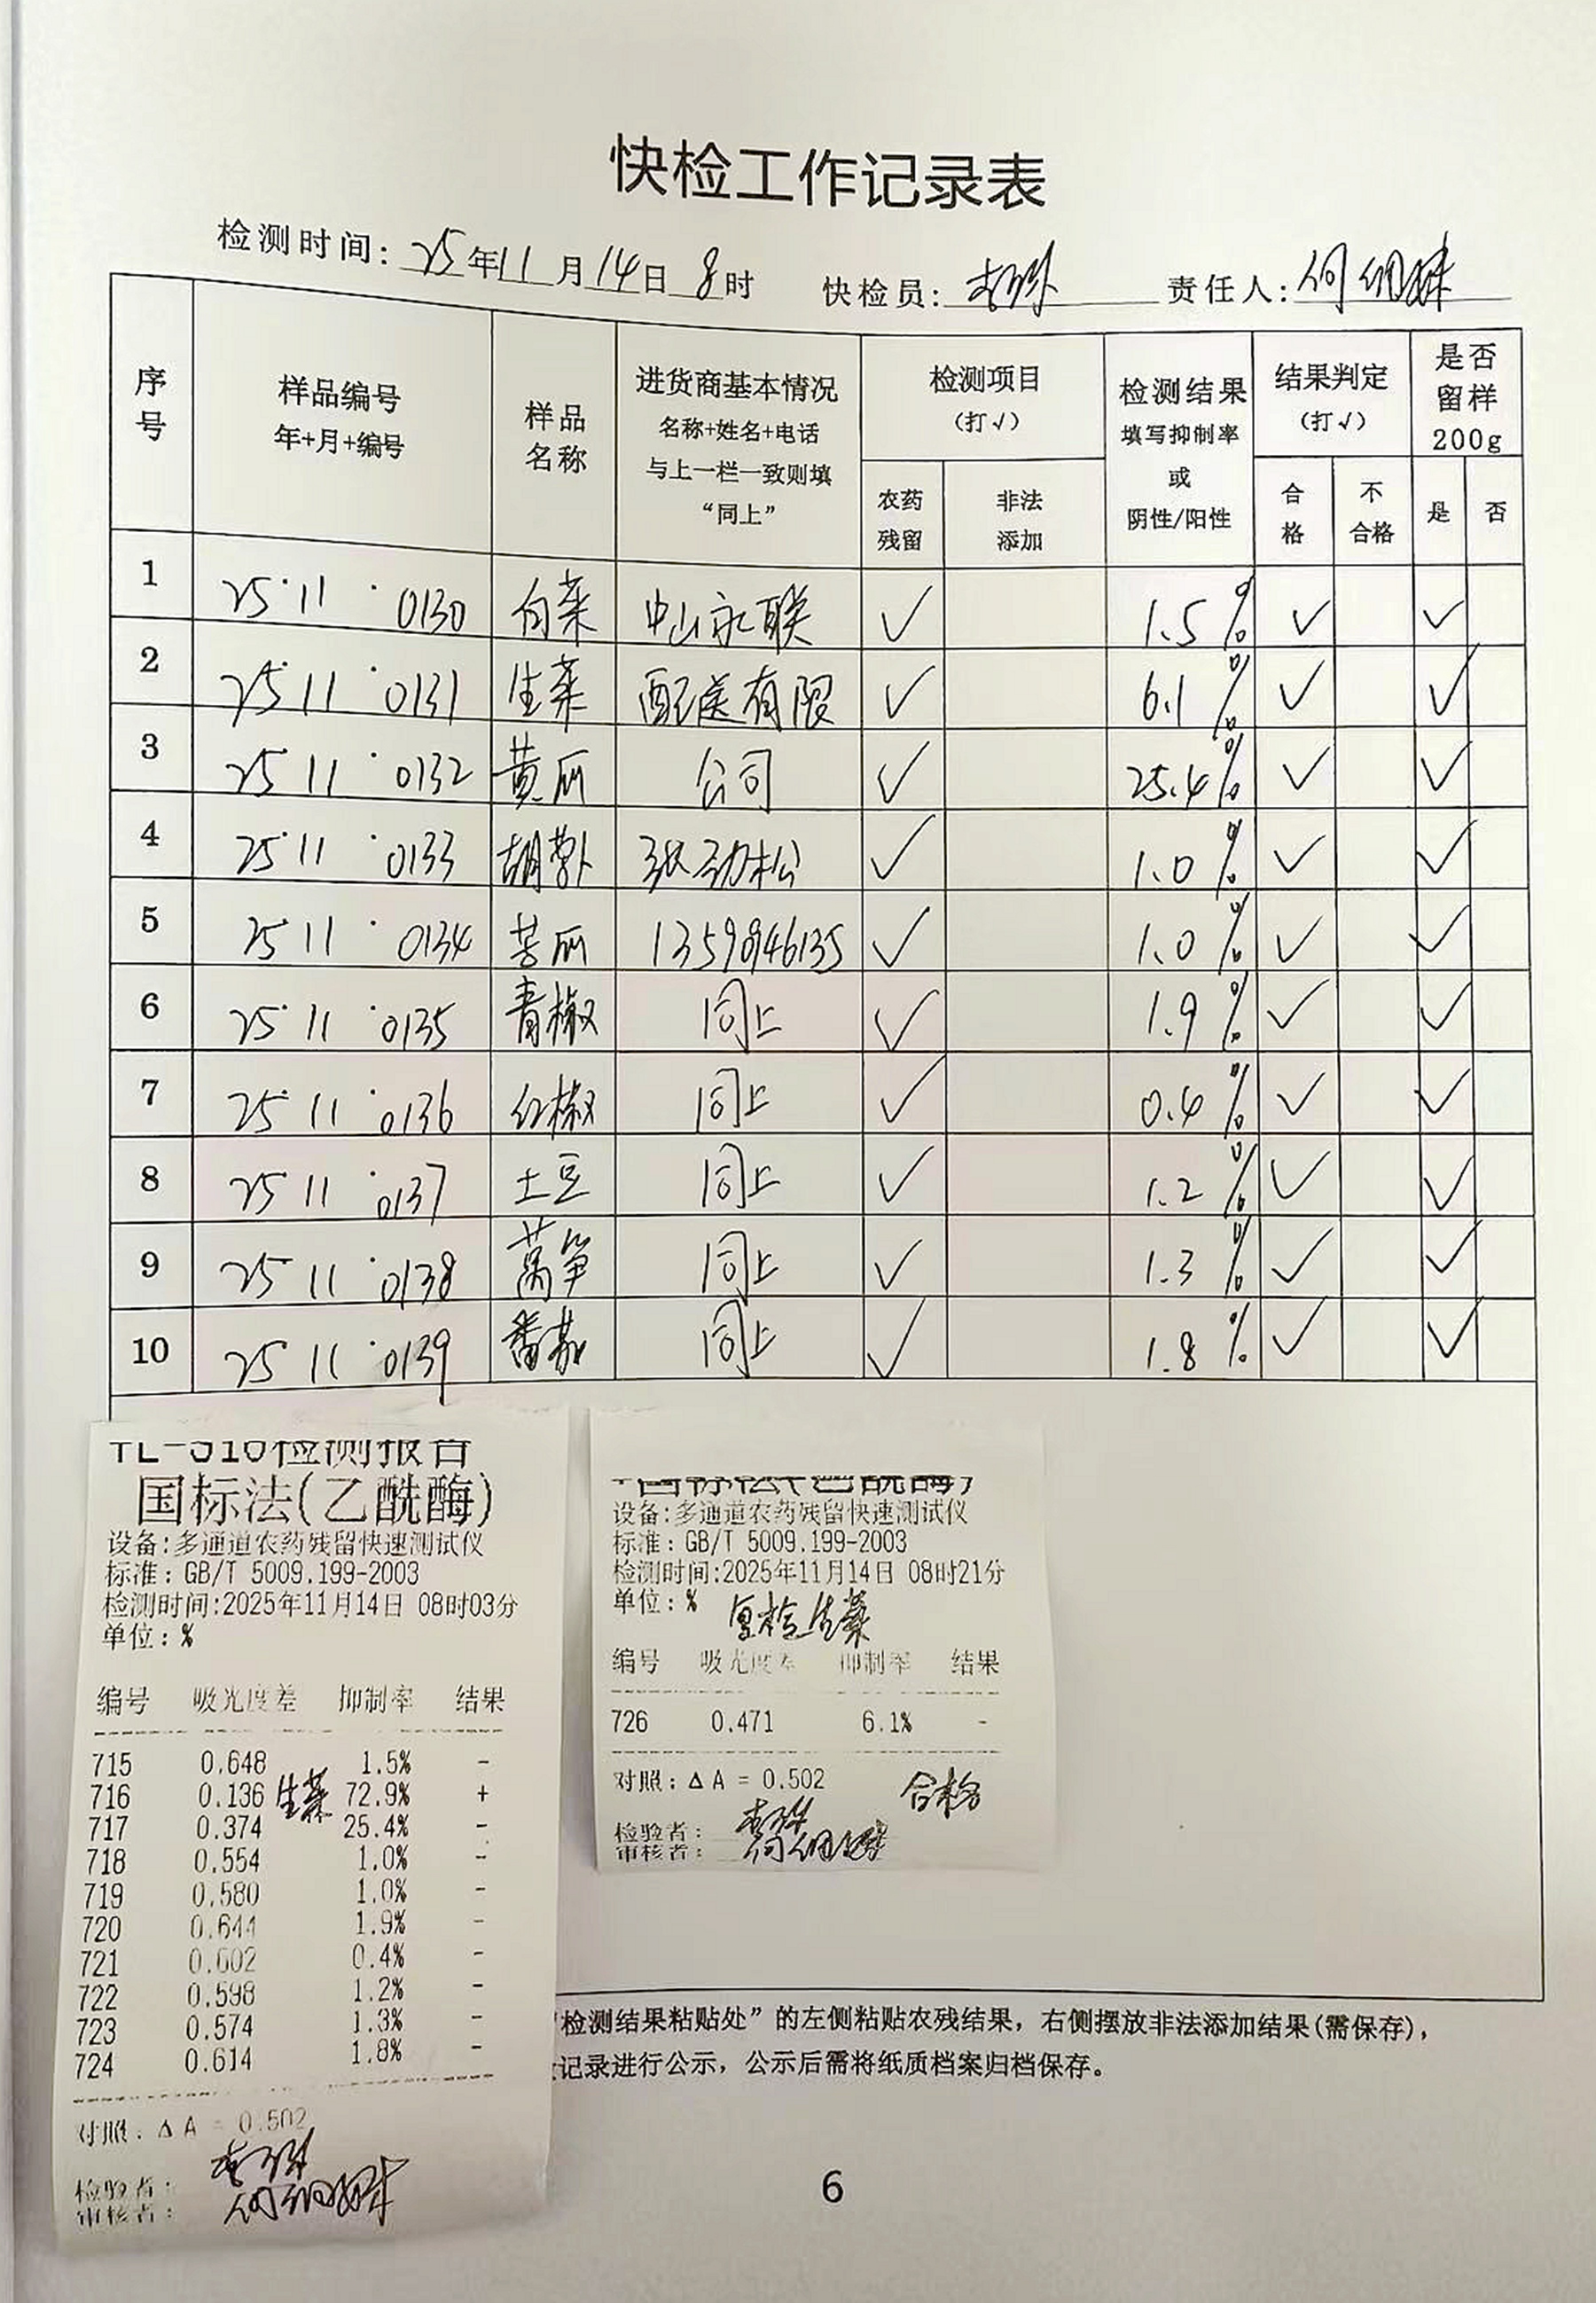 快检工作记录表
检测时间: 25年11月14日8时 快检员: 责任人: 何
序号 样品编号 年+月+编号 样品名称 进货商基本情况 名称+姓名+电话 与上一栏一致则填“同上” 检测项目 (打√) 农药残留 非法添加 检测结果 填写抑制率 或 阴性/阳性 结果判定 (打√) 合格 不合格 是否留样200g 是 否
1 25·11·0130 白菜 中山永联 ✓ 1.5% ✓ ✓
2 25·11·0131 生菜 配送有限 ✓ 6.1% ✓ ✓
3 25 11·0132 黄瓜 公司 ✓ 25.4% ✓ ✓
4 25·11·0133 胡萝卜 张劲松 ✓ 1.0% ✓ ✓
5 25·11·0134 苦瓜 ✓ 1.0% ✓ ✓
6 25·11·0135 青椒 同上 ✓ 1.9% ✓ ✓
7 25·11·0136 红椒 同上 ✓ 0.4% ✓ ✓
8 25·11·0137 土豆 同上 ✓ 1.2% ✓ ✓
9 25·11·0138 莴笋 同上 ✓ 1.3% ✓ ✓
10 25 11·0139 番茄 同上 ✓ 1.8% ✓ ✓
TL-310检测报告
国标法(乙酰酶)
设备:多通道农药残留快速测试仪
标准: GB/T 5009.199-2003
检测时间:2025年11月14日 08时03分
单位: %
编号 吸光度差 抑制率 结果
715 0.648 1.5% -
716 0.136 生菜 72.9% +
717 0.374 25.4% -
718 0.554 1.0% -
719 0.580 1.0% -
720 0.644 1.9% -
721 0.602 0.4% -
722 0.598 1.2% -
723 0.574 1.3% -
724 0.614 1.8% -
对照: Δ A = 0.502
检验者:
审核者:
国标法(乙酰酶)
设备:多通道农药残留快速测试仪
标准: GB/T 5009.199-2003
检测时间:2025年11月14日 08时21分
单位: % 复检生菜
编号 吸光度差 抑制率 结果
726 0.471 6.1% -
对照: Δ A = 0.502 合格
检验者:
审核者:
“检测结果粘贴处”的左侧粘贴农残结果，右侧摆放非法添加结果(需保存)，
记录进行公示，公示后需将纸质档案归档保存。
6